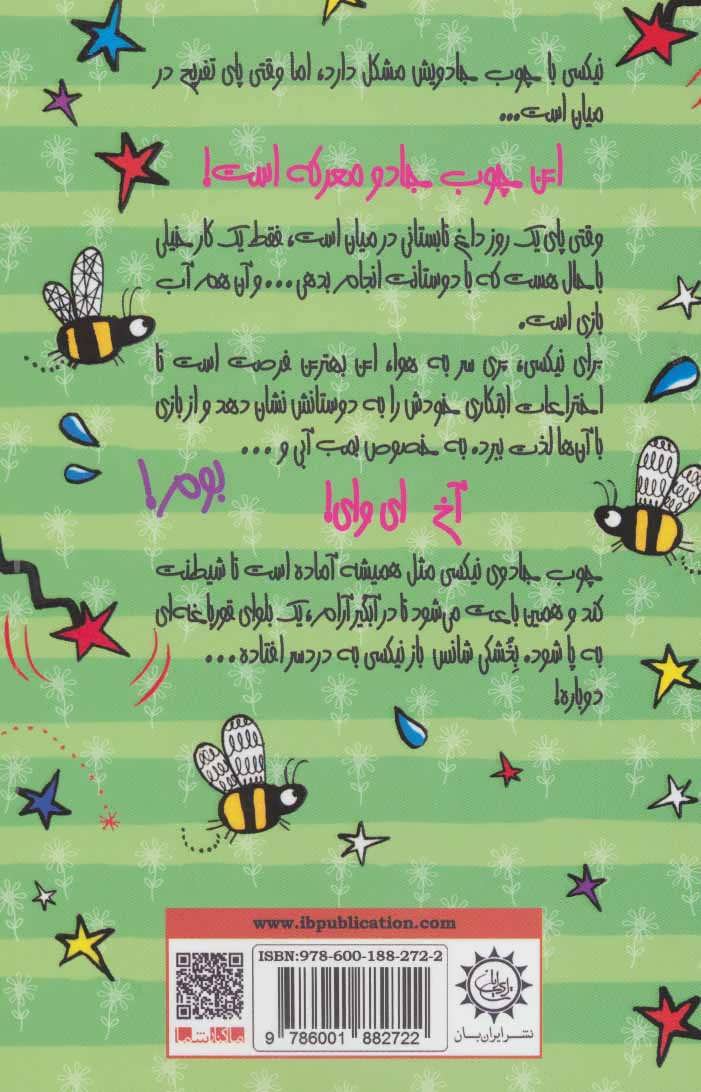 نیکسی با چوب جادویش مشکل دارد، اما وقتی پای تفریح در
میان است...
این چوب جادو معرکه است!
وقتی پای یک روز داغ تابستانی در میان است، فقط یک کار خیلی
باحال هست که با دوستانت انجام بدهی... و آن هم آب
بازی است.
برای نیکسی، پری سر به هوا، این بهترین فرصت است تا
اختراعات ابتکاری خودش را به دوستانش نشان دهد و از بازی
با آن‌ها لذت ببرد. به خصوص بمب آبی و ...
بوم!
آخ ای وای!
چوب جادوی نیکسی مثل همیشه آماده است تا شیطنت
کند و همین باعث می‌شود تا در آبگیر آرام، یک بلوای قورباغه‌ای
به پا شود. بِخُشکی شانس باز نیکسی به دردسر افتاده...
دوباره!
www.ibpublication.com
ISBN:978-600-188-272-2
9 786001 882722
ما کنار شما
نشر ایران‌بان